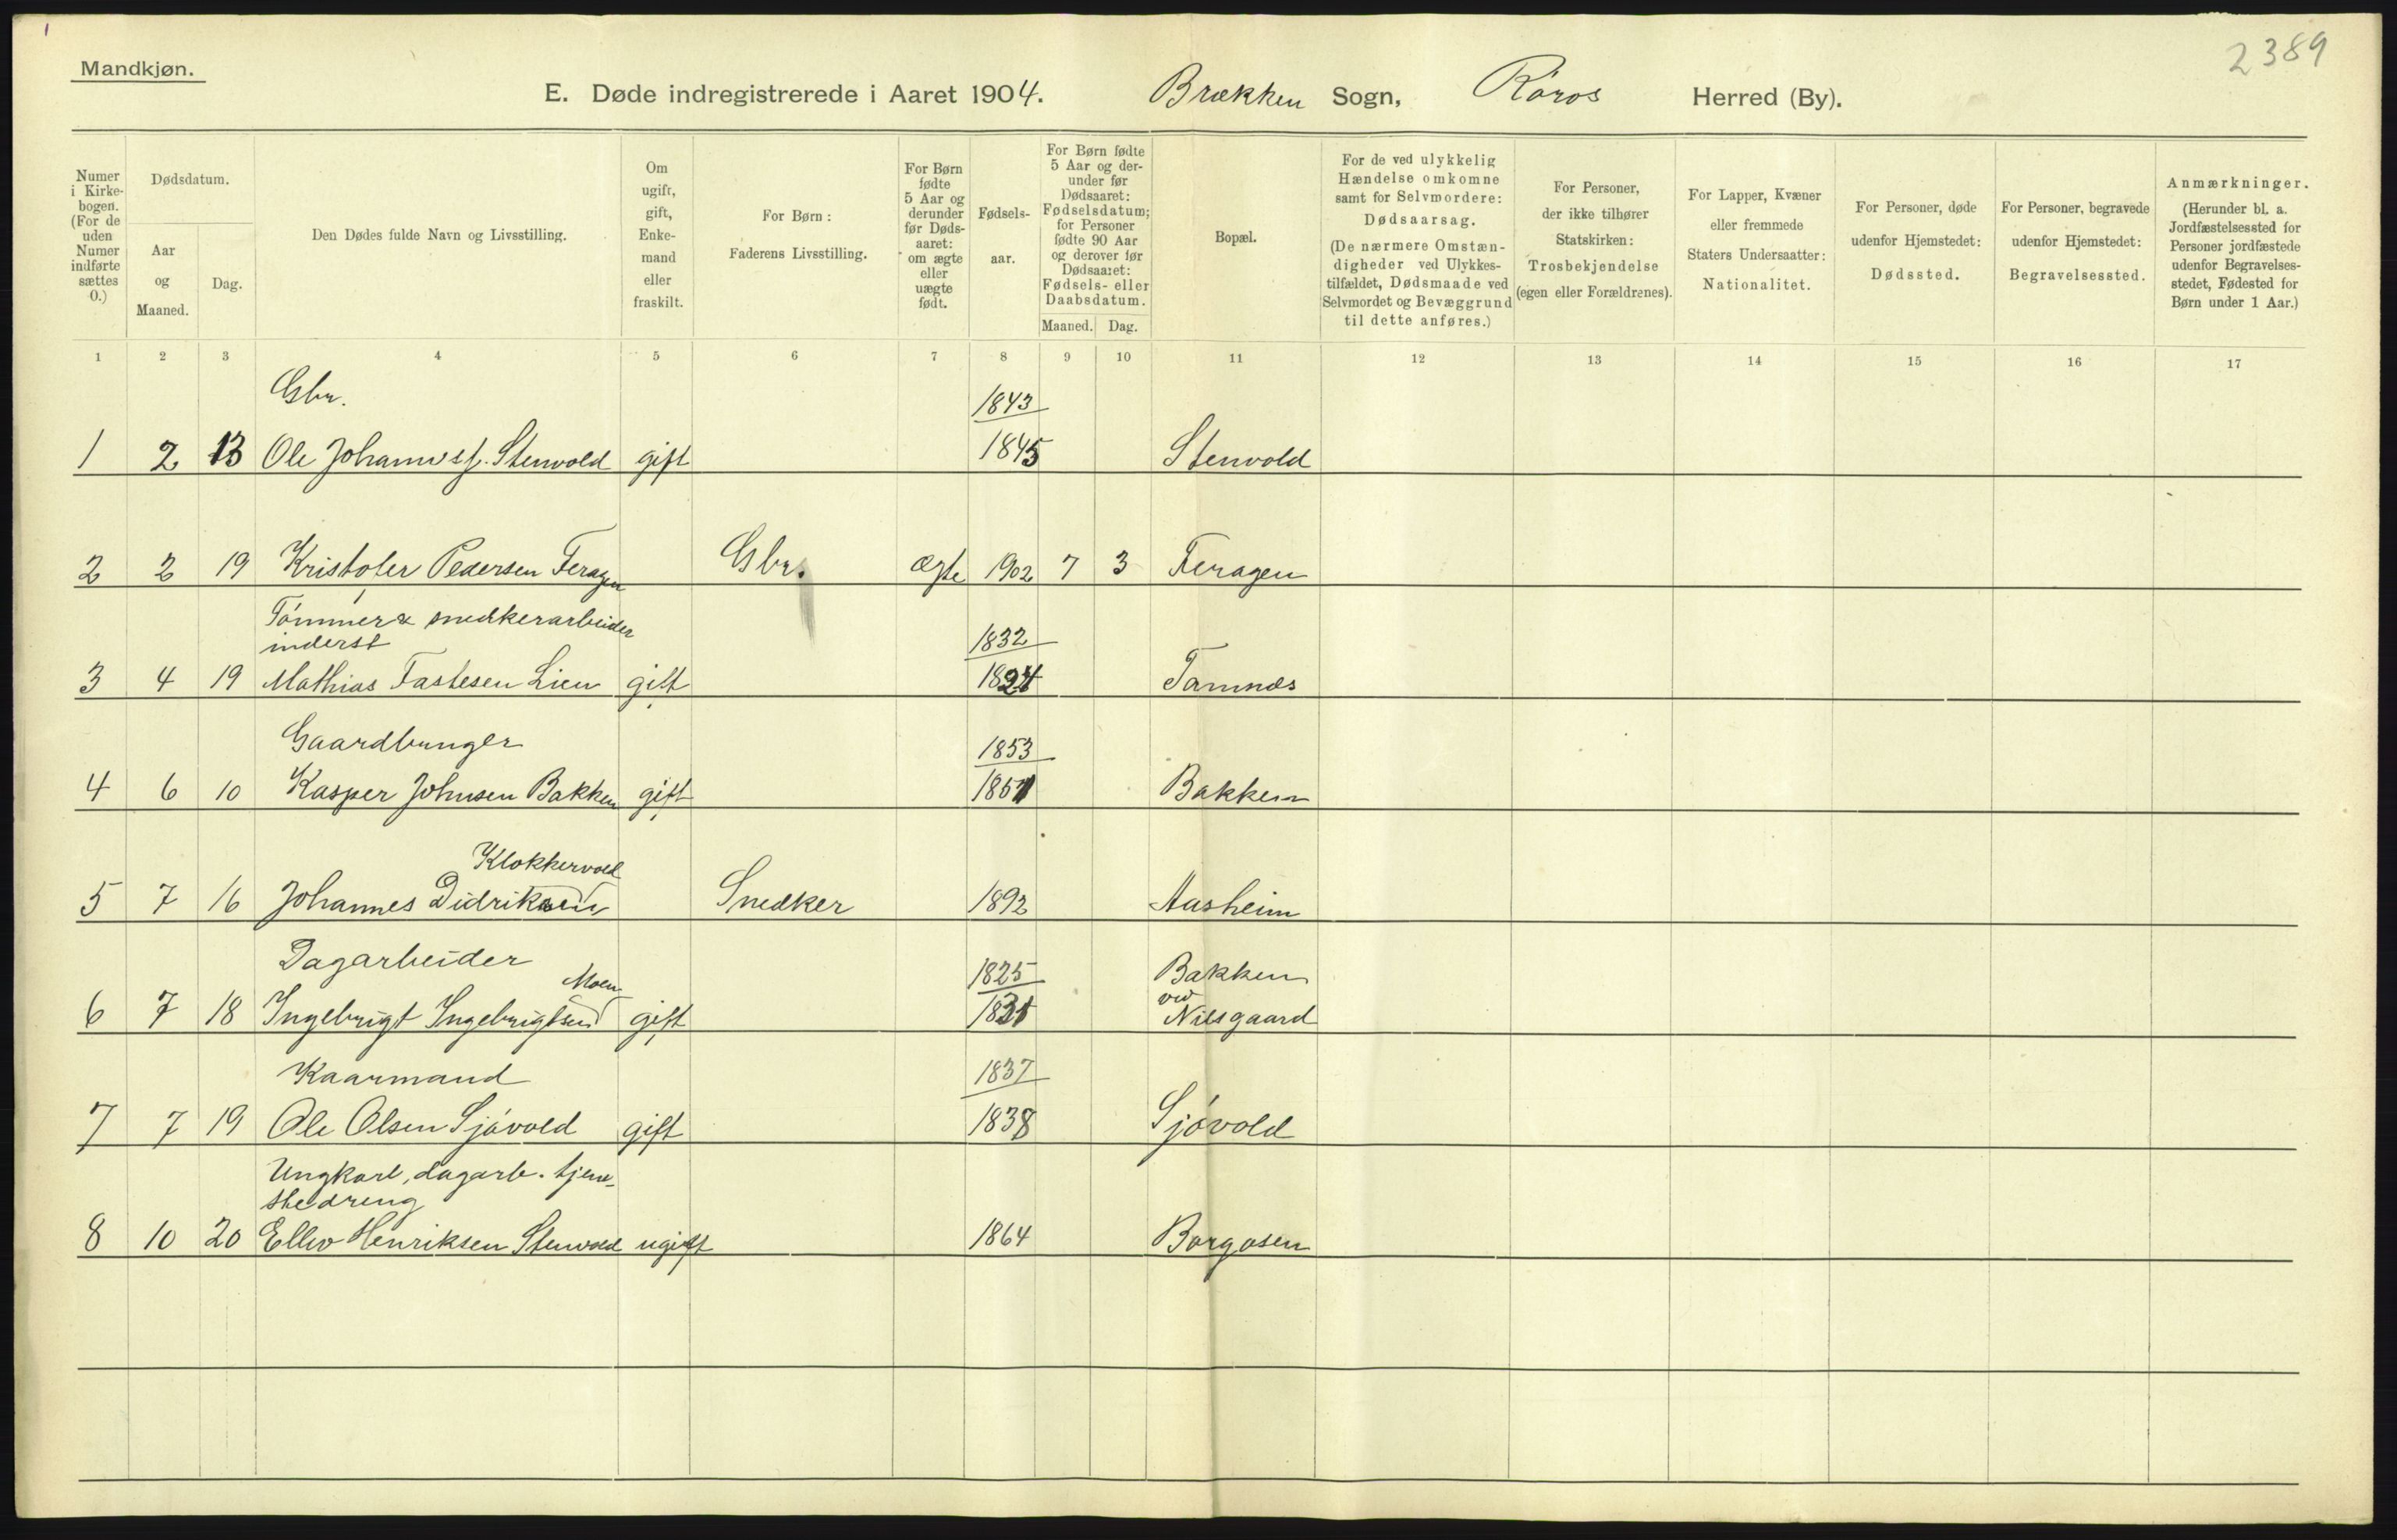 2389
Mandkjøn.
E. Døde indregistrerede i Aaret 1904. Brækken Sogn, Røros Herred (By).
Numer i Kirke-bogen. (For de uden Numer indførte sættes 0.)
Dødsdatum.
Aar og Maaned.
Dag.
Den Dødes fulde Navn og Livsstilling.
Om ugift, gift, Enke-mand eller fraskilt.
For Børn: Faderens Livsstilling.
For Børn fødte 5 Aar og derunder før Døds-aaret: om ægte eller uægte født.
Fødsels-aar.
For Børn fødte 5 Aar og der-under før Dødsaaret: Fødselsdatum; for Personer fødte 90 Aar og derover før Dødsaaret: Fødsels- eller Daabsdatum.
Maaned. Dag.
Bopæl.
For de ved ulykkelig Hændelse omkomne samt for Selvmordere: Dødsaarsag. (De nærmere Omstæn-digheder ved Ulykkes-tilfældet, Dødsmaade ved Selvmordet og Bevæggrund til dette anføres.)
For Personer, der ikke tilhører Statskirken: Trosbekjendelse (egen eller Forældrenes).
For Lapper, Kvæner eller fremmede Staters Undersaatter: Nationalitet.
For Personer, døde udenfor Hjemstedet: Dødssted.
For Personer, begravede udenfor Hjemstedet: Begravelsessted.
Anmærkninger. (Herunder bl. a. Jordfæstelsessted for Personer jordfæstede udenfor Begravelses-stedet, Fødested for Børn under 1 Aar.)
1 2 3 4 5 6 7 8 9 10 11 12 13 14 15 16 17
Gbr. 1843
1 2 13 Ole Johannesf. Stenvold gift 1845 Stenvold
2 2 19 Kristofer Pedersen Feragen Gbr. ægte 1902 7 3 Feragen
Tømmer & snedkerarbeider
inderst 1832
3 4 19 Mathias Fastesen Lien gift Tamnes
Gaardbruger 1853
4 6 10 Kasper Johnsen Bakken gift 1851 Bakken
Klokkervold
5 7 16 Johannes Didriksen Snedker 1892 Aasheim
Dagarbeider Moen 1825 Bakken
ved
6 7 18 Ingebrigt Ingebrigtsen gift Nilsgaard
Kaarmand 1837
7 7 19 Ole Olsen Sjøvold gift 1838 Sjøvold
Ungkarl, dagarb. tjene-
stedreng
8 10 20 Ellev Henriksen Stenvold ugift 1864 Borgosen